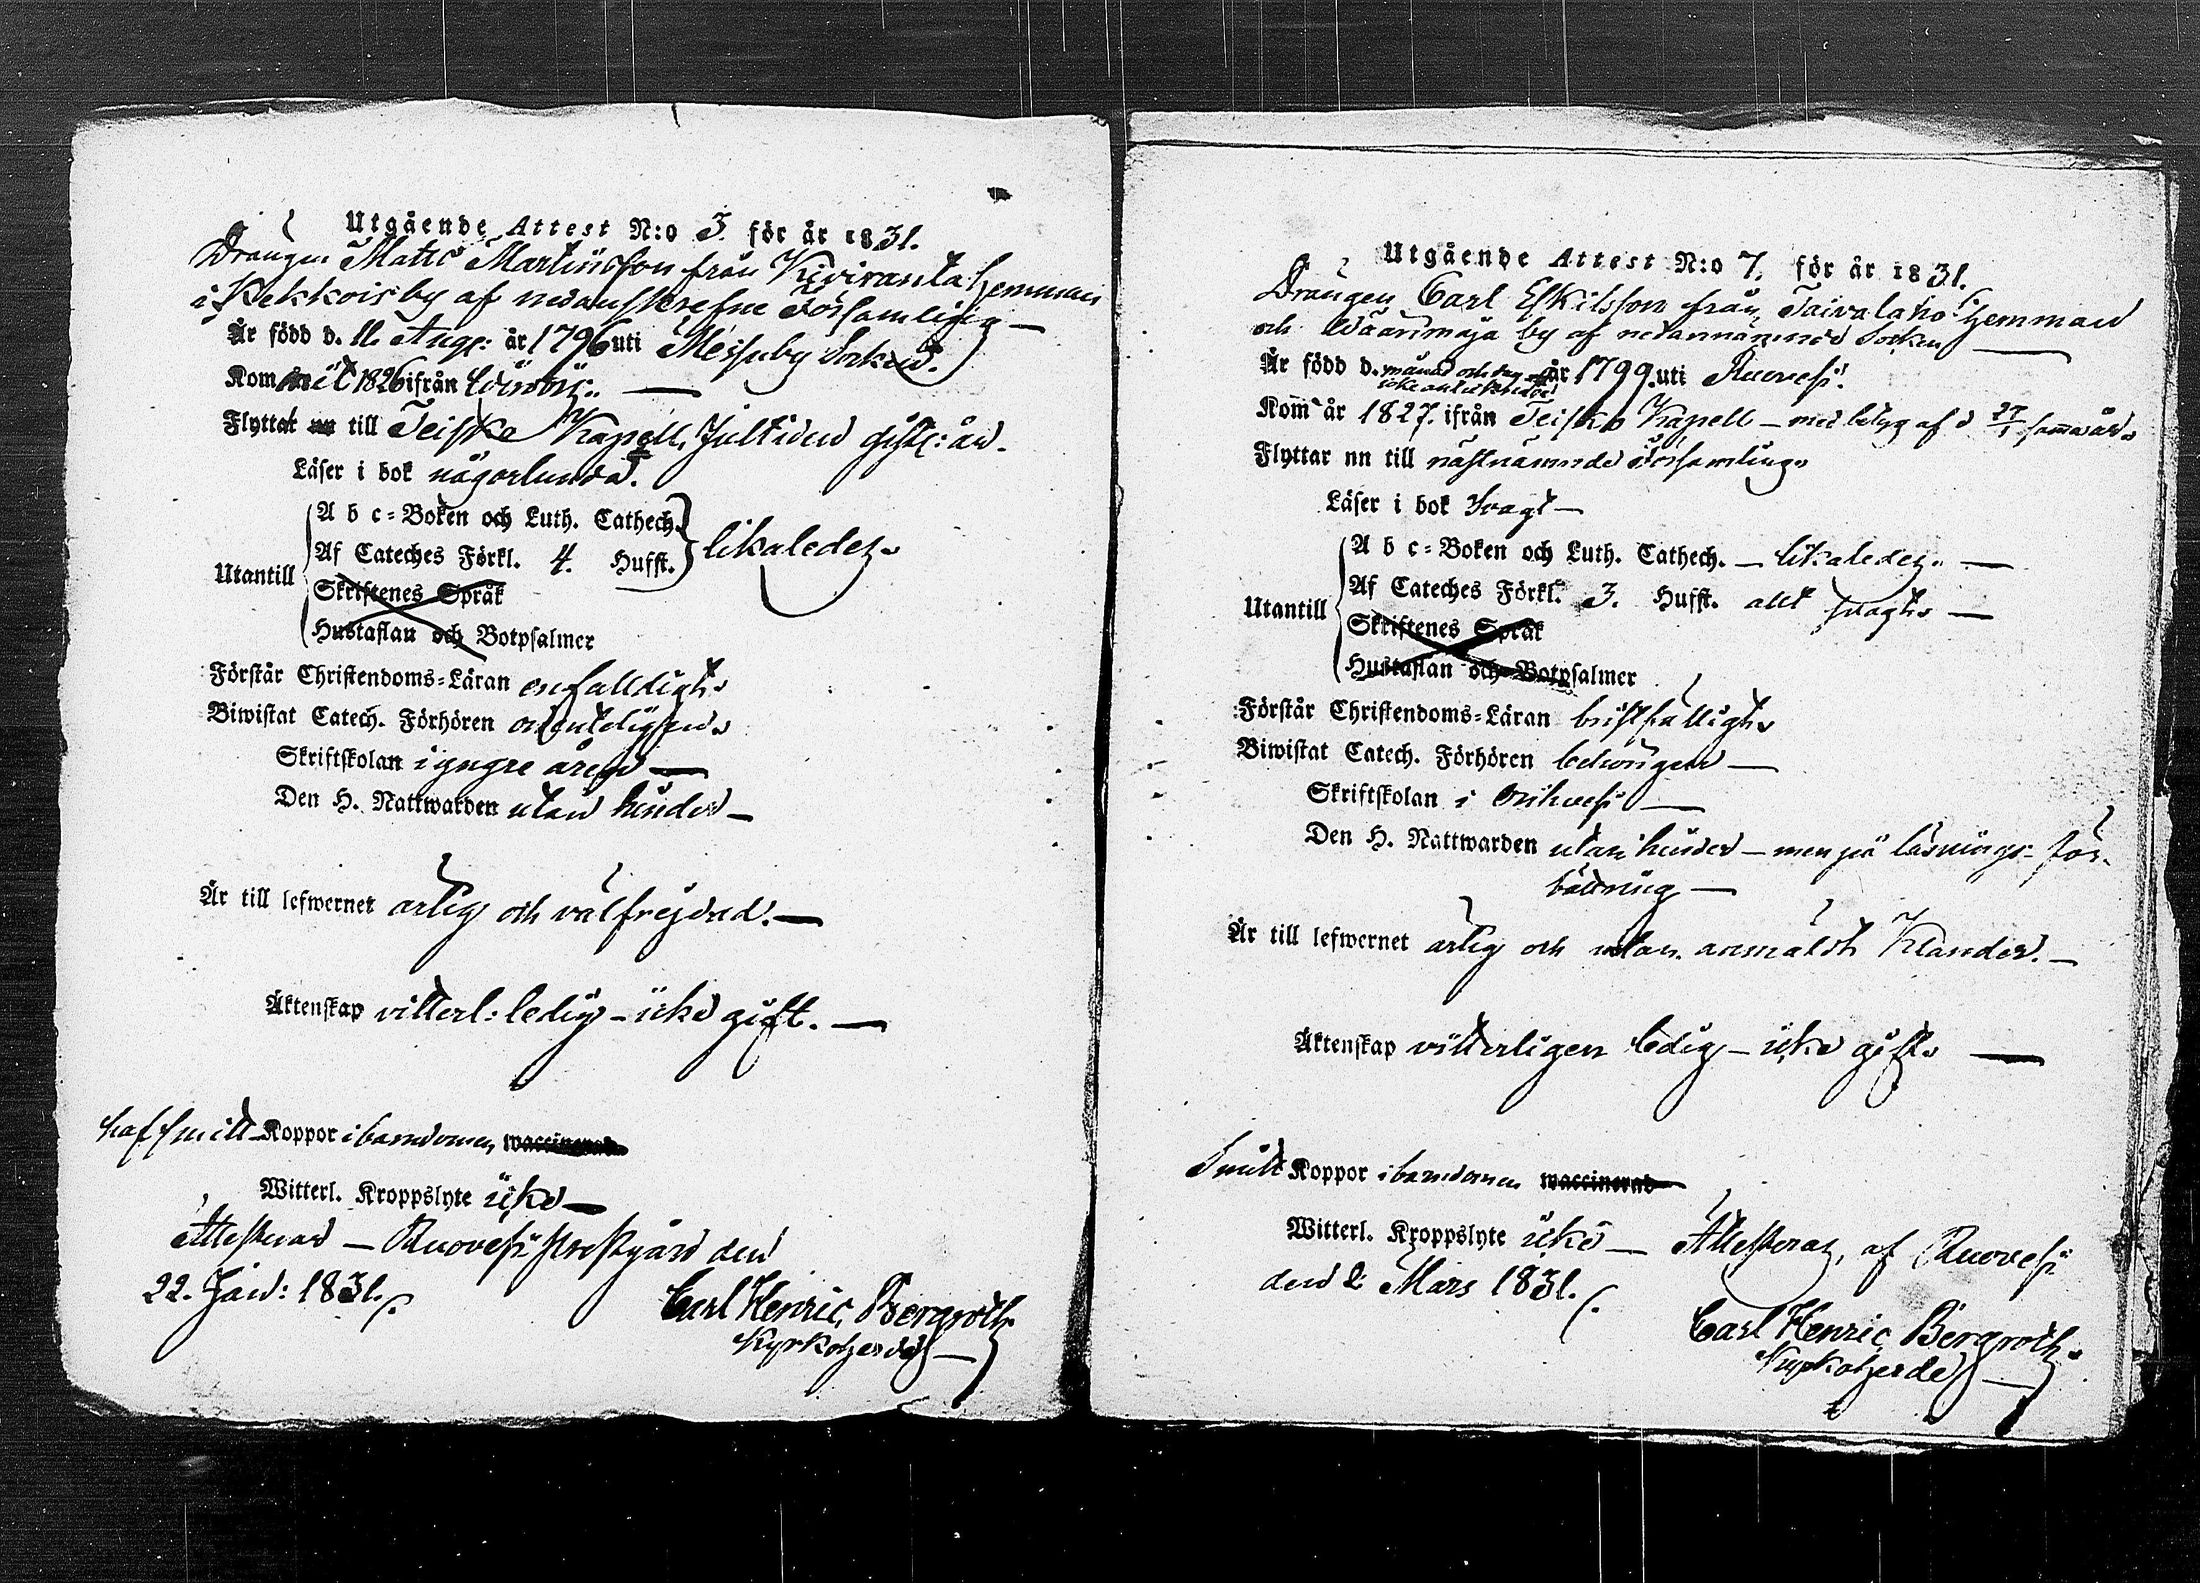 Utgående Attest N:o 3. för år 1831.
Drängen Matts Martinsson från Kiviranta hemman
i Pekkois by af nedanskrefne Församling —
Är född d. 11. Aug: år 1796 uti Messuby Socken.
Kom år 1826 ifrån —
Flyttat nu till Teisko Kapell, Jultiden sistl: år.
Läser i bok någorlunda.
Utantill
A b c-Boken och Luth. Cathech.
Af Cateches Förkl. 4. Hufst. likaledes.
Skriftenes Språk
Hustaflan och Botpsalmer
Förstår Christendoms-Läran enfaldigt.
Biwistat Catech. Förhören ordenteligen.
Skriftskolan i yngre åren —
Den H. Nattwarden utan hinder —
Är till lefwernet ärlig och välfrejdad. —
Äktenskap vitterl: ledig - icke gift. —
haft smitt Koppor i barndomen, waccinerad
Witterl. Kroppslyte icke —
Attesteras — Ruovesi Prestgård den
22. Jan: 1831.
Carl Henric Bergroth.
Kyrkoherde —
Utgående Attest N:o 7. för år 1831.
Drängen Carl Eskilsson från Taivalaho hemman
och Wäärinmaja by af nedannämnde Socken —
Är född d. månad och dag icke antecknade år 1799. uti Ruovesi.
Kom år 1827. ifrån Teisko Kapell — med betyg af d 27/1 samma år.
Flyttar nu till nästnämnde Församling.
Läser i bok svagt —
Utantill
A b c-Boken och Luth. Cathech. — likaledes. —
Af Cateches Förkl. 3. Hufst. allt svagt. —
Skriftenes Språk
Hustaflan och Botpsalmer
Förstår Christendoms-Läran bristfälligt.
Biwistat Catech. Förhören behörigen —
Skriftskolan i Orihvesi —
Den H. Nattwarden utan hinder — men på läsnings- för-
bättring —
Är till lefwernet ärlig och utan anmäldt Klander. —
Äktenskap vitterligen ledig — icke gift. —
Smitt Koppor i barndomen waccinerad
Witterl. Kroppslyte icke — Attesteras, af Ruovesi
den 2 Mars 1831.
Carl Henric Bergroth.
Kyrkoherde —